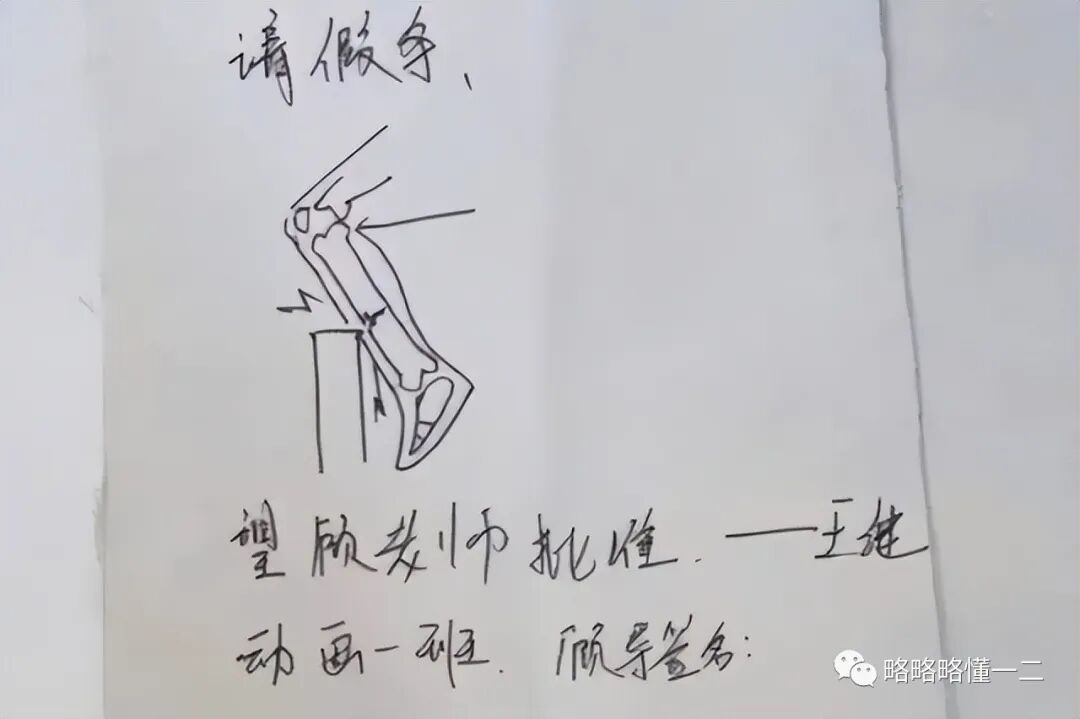 请假条、
望顾老师批准. ——王继
动画一班. 顾导签名:
略略略懂一二